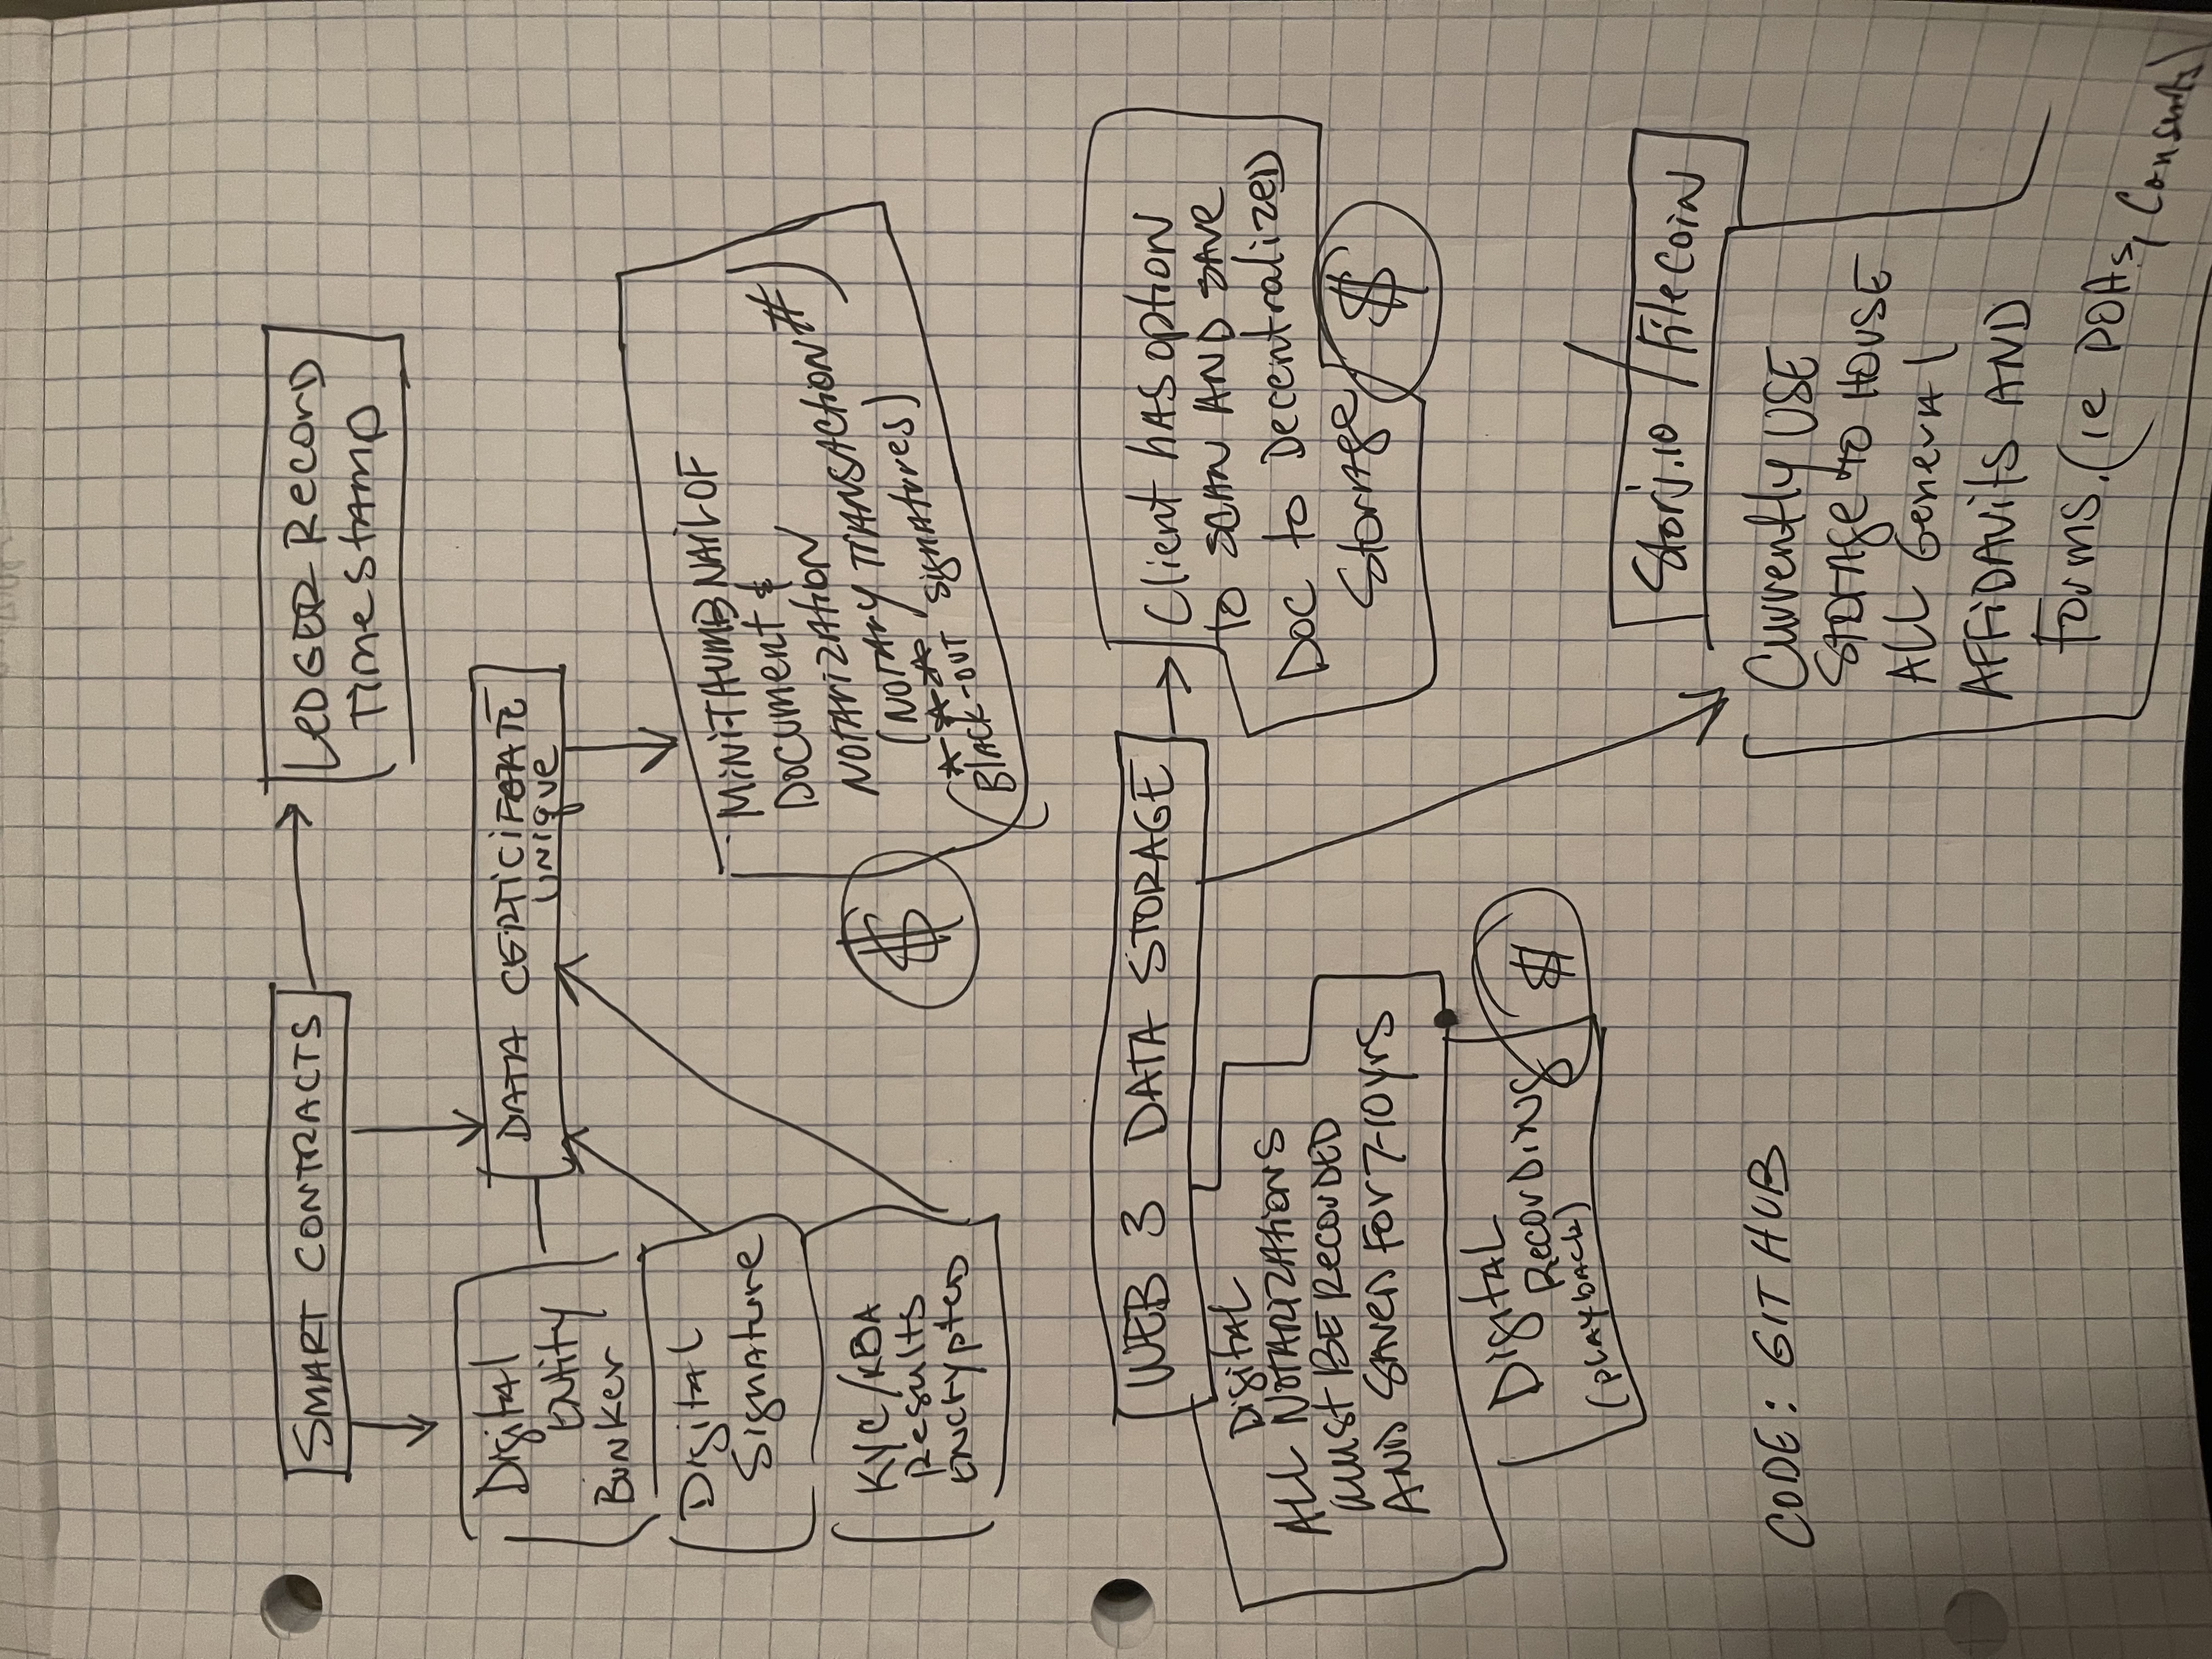 SMART CONTRACTS
LEDGER Record
Time stamp
DATA CERTICIFATE
UNIQUE
Digital
Entity
Bunker
Digital
Signature
KYC/KBA
Results
Encrypted
MINI-THUMBNAIL OF
DOCUMENT &
NOTARIZATION
NOTARY TRANSACTION #)
(NOTARY signatures)
Black-out
$
WEB 3 DATA STORAGE
Client has option
to scan AND save
Doc to Decentralized
Storage
$
Digital
ALL NOTARIZATIONS
MUST BE RECORDED
AND SAVED FOR 7-10 yrs
Digital
Recordings
(playback)
$
Storj.io / Filecoin
Currently USE
STORAGE to HOUSE
ALL General
AFFIDAVITS AND
forms. (ie POAs, Consents)
CODE: GIT HUB